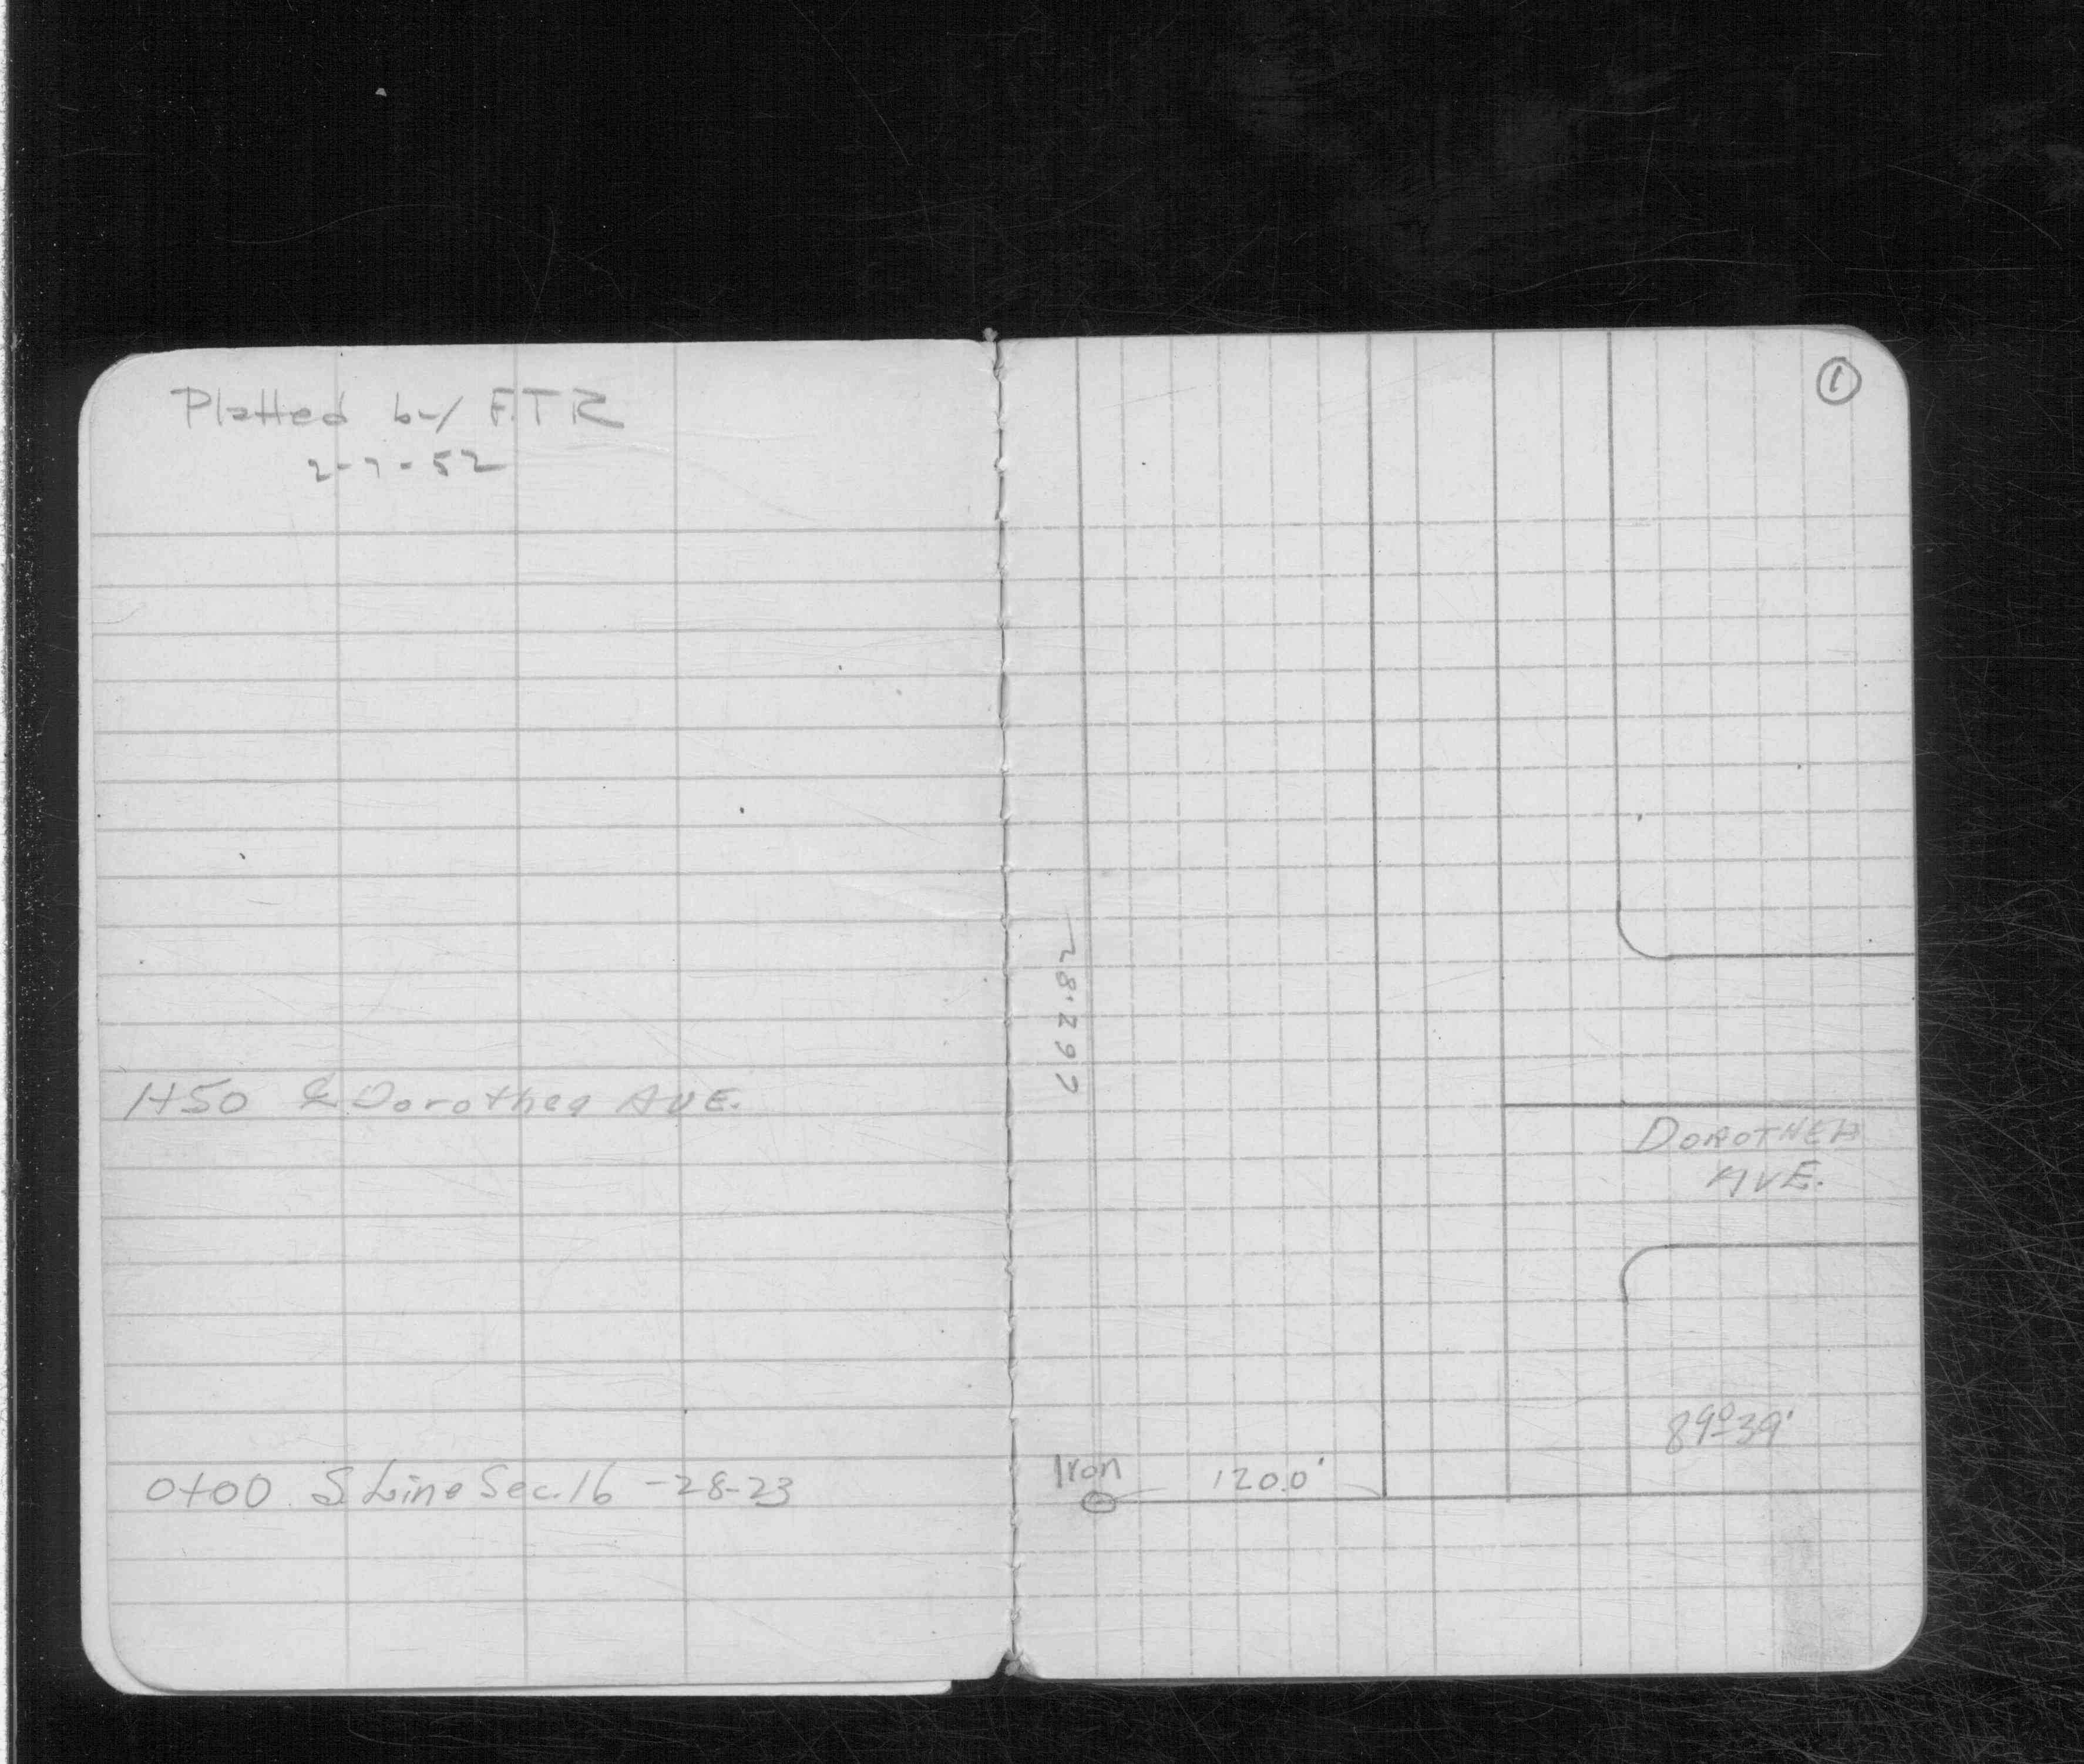 Platted by F.T.R
2-7-52
1+50 ℄ Dorothea AVE.
0+00 S. Line Sec. 16 -28-23
1
662.82
DOROTHEA
AVE.
89°39'
Iron
120.0'